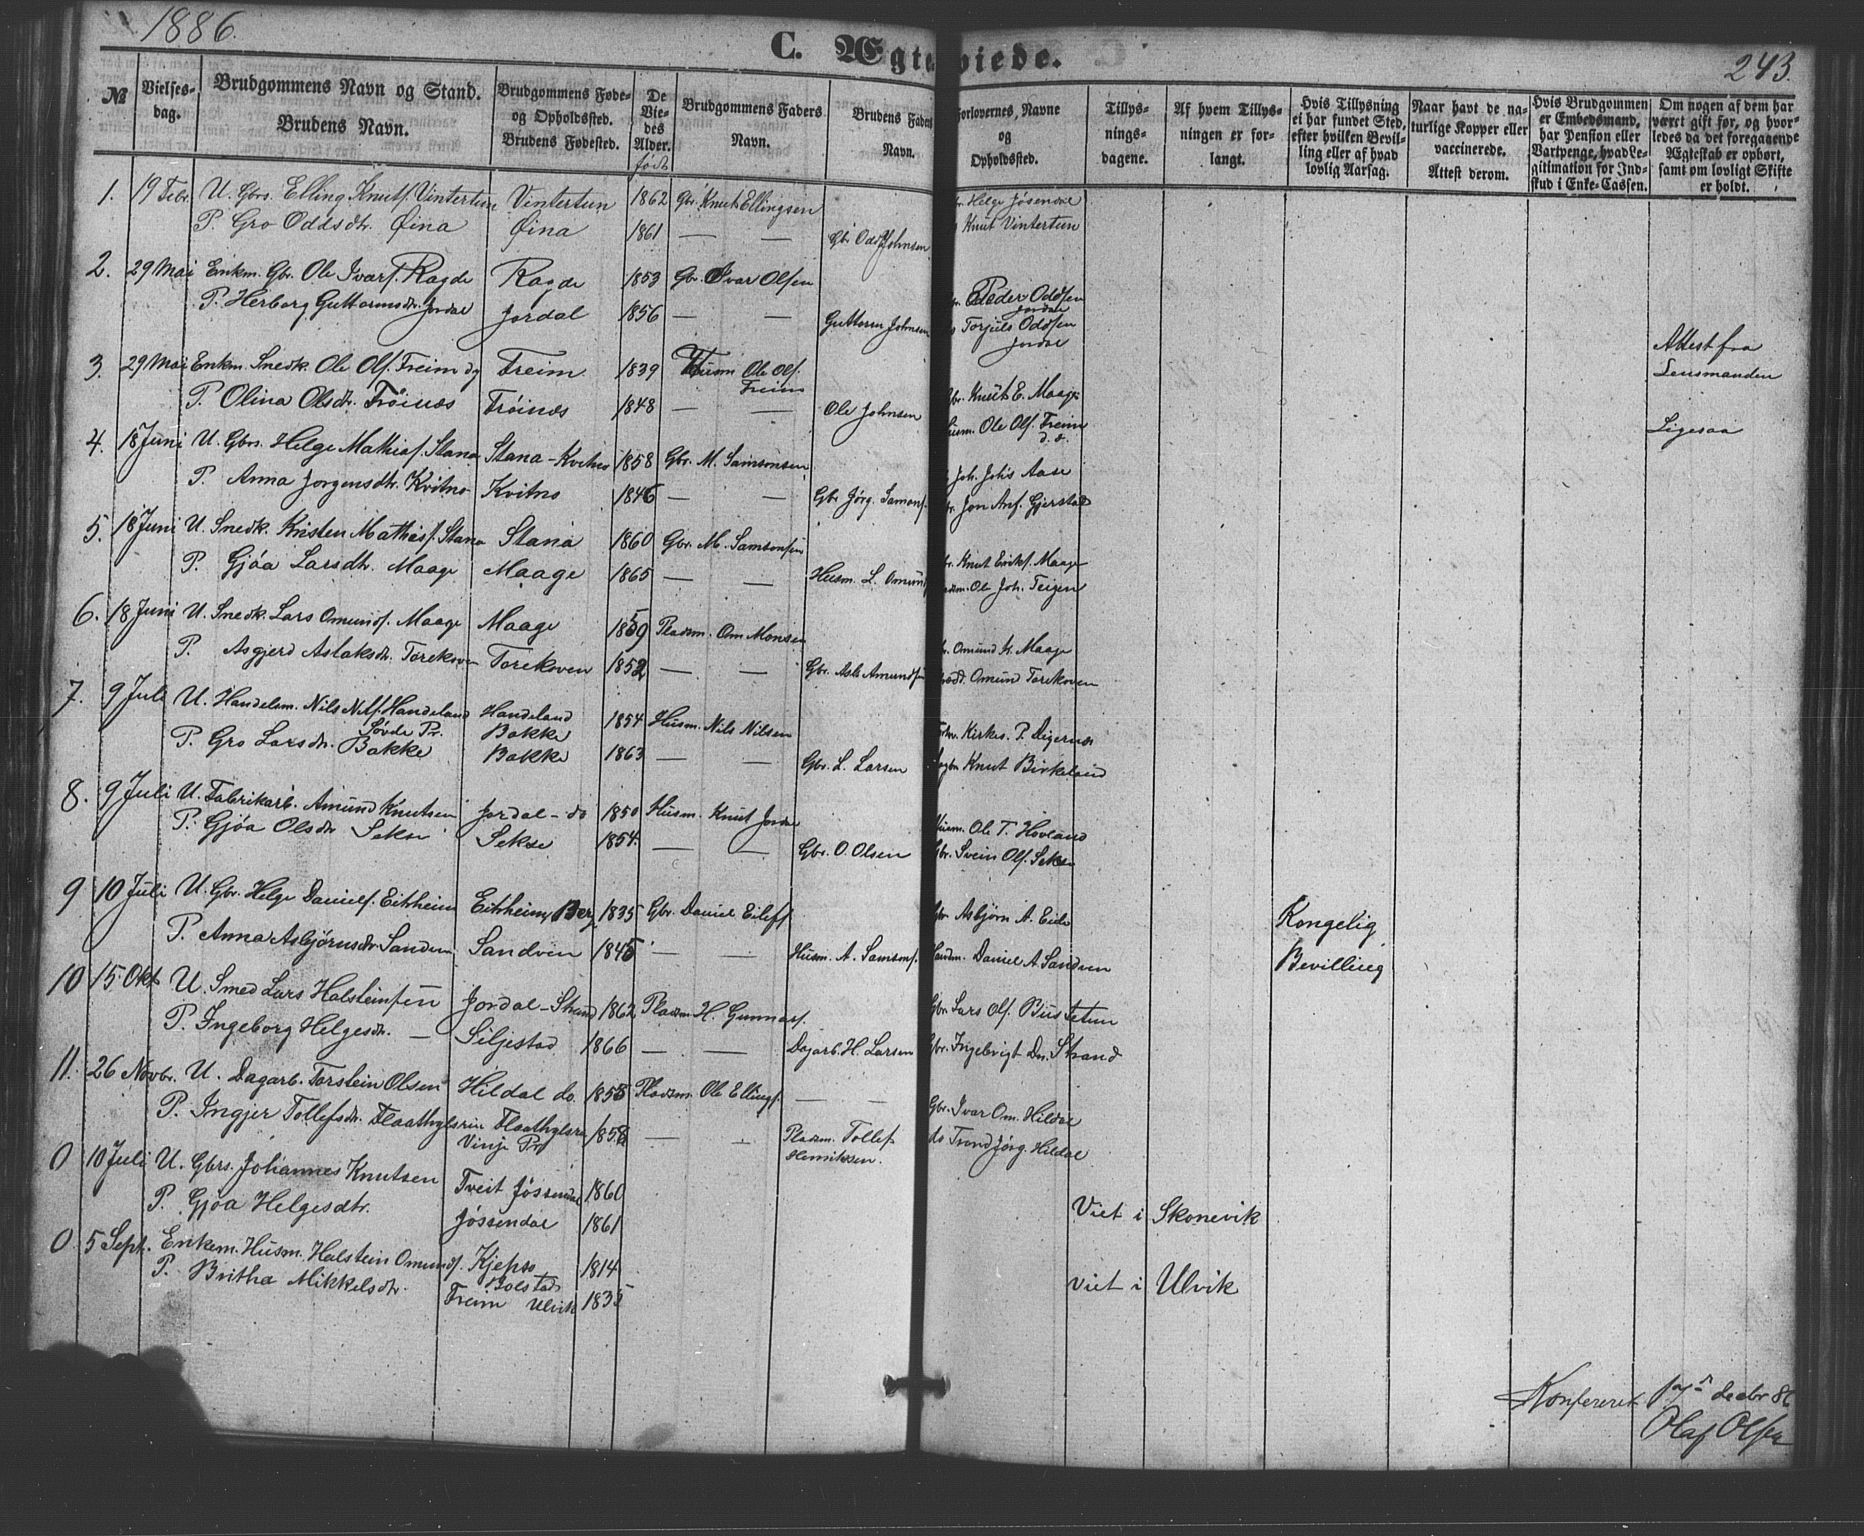 1886.
C. Ægteviede.
243.
№
Vielses-dag.
Brudgommens Navn og Stand.
Brudens Navn.
Brudgommens Føde- og Opholdssted.
Brudens Fødested.
De Vie-des Alder.
født
Brudgommens Faders Navn.
Brudens Faders Navn.
Forlovernes, Navne og Opholdssted.
Tillys-nings-dagene.
Af hvem Tillys-ningen er for-langt.
Hvis Tillysning ei har fundet Sted, efter hvilken Bevil-ling eller af hvad lovlig Aarsag.
Naar havt de na-turlige Kopper eller vaccinerede.
Attest derom.
Hvis Brudgommen er Embedsmand, har Pension eller Vartpenge, hvad Le-gitimation for Ind-skud i Enke-Cassen.
Om nogen af dem har været gift før, og hvor-ledes da det foregaaende Ægteskab er ophørt, samt om lovligt Skifte er holdt.
1. 19 Febr. U. Gbrs. Elling Knuts. Vintertun Vintertun 1862 Gbr. Knut Ellingsen Helge Jøsendal
P. Gro Oddsdtr. Øina Øina 1861 — — Gbr. Odd Johnsen Knut Vintertun
2. 29 Mai Enkm. Gbr. Ole Ivars. Ragde Ragde 1853 Gbr. Ivar Olsen Peder Oddsen Jordal
P. Herborg Guttormsdtr. Jordal Jordal 1856 — — Guttorm Johnsen Torjuls Oddsen Jordal
3. 29 Mai Enkm. Snedk. Ole Ols. Freim Freim 1839 Husm Ole Ols. Freim Gbr. Knut E. Maage Attest fra Lensmanden
P. Olina Olsdtr. Frøinæs Frøinæs 1848 — — Ole Johnsen Husm. Ole Ols. Freim d. æ. Ligesaa
4. 18 Juni U. Gbrs. Helge Mathias. Stana Stana-Kvitno 1858 Gbr. M. Samsonsen Joh. Johs Aase
P. Anna Jørgensdtr. Kvitno Kvitno 1846 — — Gbr Jørg. Samons. Jon Arnf. Gjerstad
5. 18 Juni U. Snedk. Kristen Mathias. Stana Stana 1860 Gbr. M. Samsonsen Knut Eriks. Maage
P. Gjøa Larsdtr. Maage Maage 1865 — — Husm. L. Omund Ole Joh. Teigen
6. 18 Juni U. Snedk. Lars Omunds. Maage Maage 1859 Pladsm. Om Monsen Omund Maage
P. Asgjerd Aslaksdtr. Torekoven Torekoven 1852 — — Gbr. Asls Amundsen Omund Torekoven
7. 9 Juli U. Handelsm. Nils Nils. Handeland Søvde Pr. Handeland Bakke 1854 Husm. Nils Nilsen Kirkes. P. Digernæs
P. Gro Larsdtr. Bakke Bakke 1863 — — Gbr. L. Larsen Knut Birkeland
8. 9 Juli U. Fabrikarb. Amund Knutsen Jordal - do 1850 Husm. Knut Jordal Husm. Ole T. Hovland
P. Gjøa Olsdtr Sekse Sekse 1854. — — Gbr. O. Olsen Gbr. Svein Ols. Sekse
9 10 Juli U. Gbr. Helge Daniels. Eitrheim Eitrheim, Berg 1835 Gbr. Daniel Eilefs. Gbr Asbjørn A. Eide Kongelig
P. Anna Asbjørnsdtr. Sandven Sandven 1845 — — Husm. A. Samsons. Daniel A Sandven Bevilling
10 15. Okt U. Smed Lars Halsteinsen Jordal-Strand 1862 Pladsm. H. Gunnars. Gbr. Lars Ols. Bustetun
P. Ingeborg Helgesdtr. — Seljestad 1866 — — Dagarb. H. Larsen Gbr. Ingebrigt Dn. Strand
11. 26 Novbr. U. Dagarb. Torstein Olsen Hildal do. 1855 Pladsm. Ole Ellings. — — Gbr. Ivar Om. Hildal
P. Ingjer Tollefsdtr. Flaathylsrin Flaathylsrin Vinje Pr 1858 — — Pladsm. Tollef Henriksen. do Trond Jørg. Hildal
0 10 Juli U. Gbrs. Johannes Knutsen Tveit Jøssendal 1860
P. Gjøa Helgesdtr. Jøssendal 1861 Viet i Skonevik
0 5 Sept. Enkem. Husm. Halstein Omunds. Kjepso 1814
P. Britha Mikkelsdtr. Freim Ulvik 1835 Viet i Ulvik
Konfereret decbr 86
Olaf Olsen